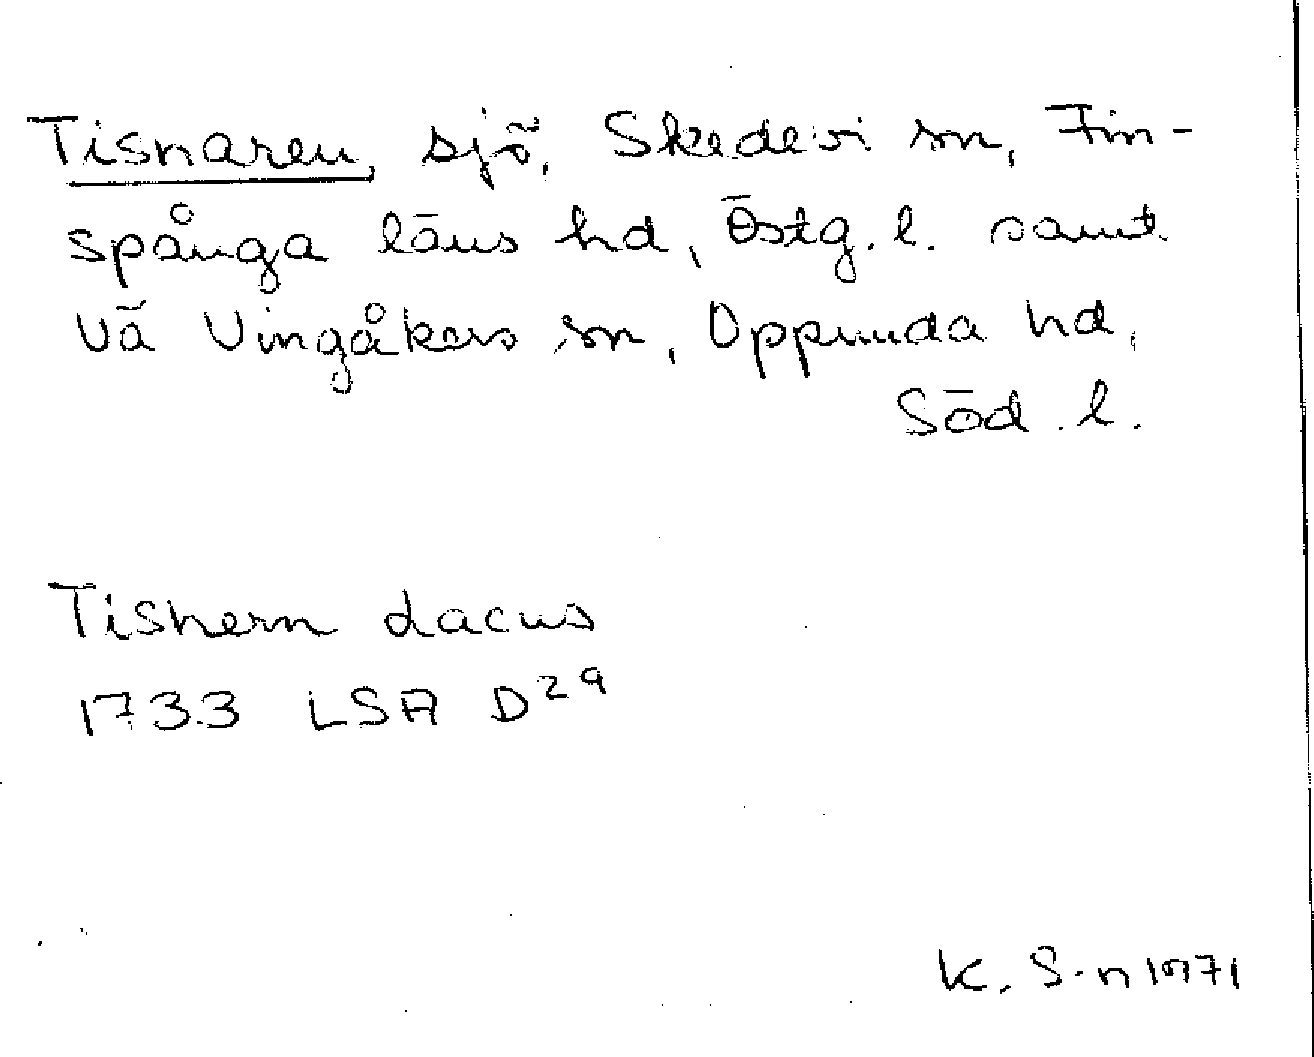 Tisnaren, sjö, Skedevi sn, Fin-
spånga läns hd, Östg. l. samt
Vä Vingåkers sn, Oppunda hd,
Söd. l.
Tishern lacus
1733 LSA D29
K. S-n 1971